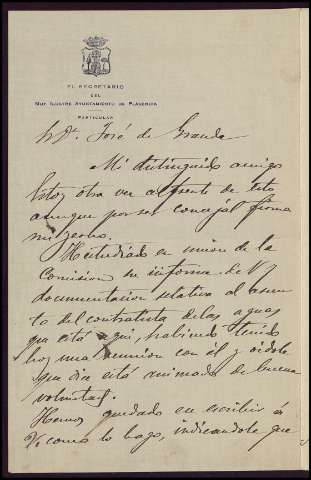 EL SECRETARIO
DEL
MUY ILUSTRE AYUNTAMIENTO DE PLASENCIA
PARTICULAR
Sr. Dn. José de Granda
Mi distinguido amigo
Estoy otra vez al frente de esto
aunque por ser concejal firma
mi
He estudiado en union de la
Comision su informe de V
documentacion relativa al asun
to del contratista de las aguas
que está aqui, habiendo tenido
hoy una reunion con él y oidole
que dice está animado de buena
voluntad.
Hemos quedado en escribir á
V. como lo hago, indicandole que